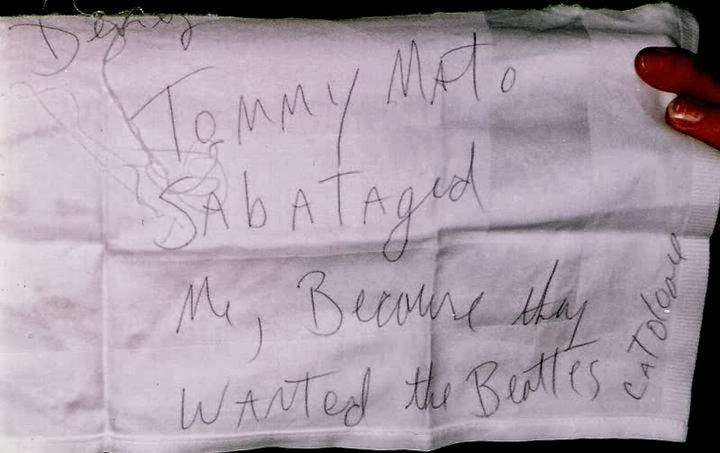 TOMMY MATO
SAbATAged
Me, Because they
WANTed the Beatles